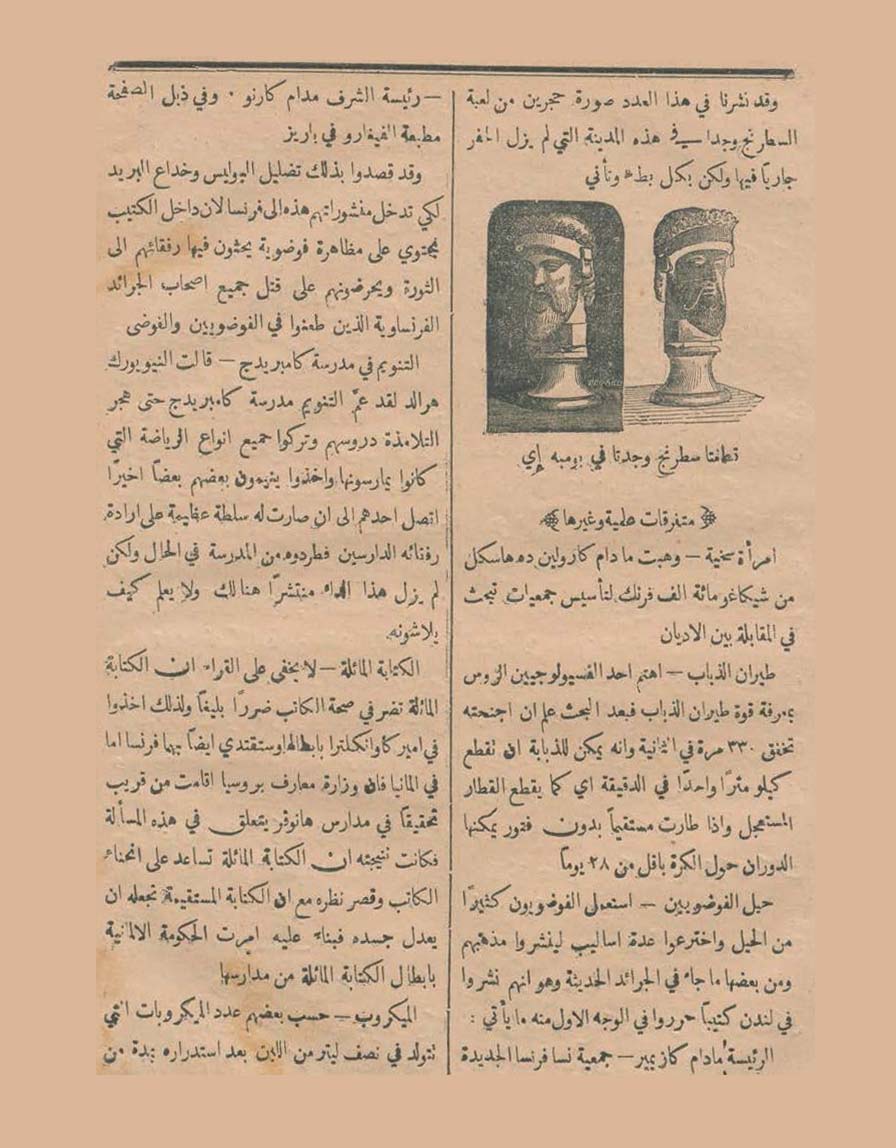 وقد نشرنا في هذا العدد صورة حجرين من لعبة
السطرنج وجدا في هذه المدينة التي لم يزل الحفر
جارياً فيها ولكن بكل بطء وتأني
قطعتا سطرنج وجدتا في بومبه إي
متفرقات علمية وغيرها
امرأة سخية – وهبت مادام كارولين ده هاسكل
من شيكاغو مائة الف فرنك لتأسيس جمعيات تبحث
في المقابلة بين الاديان
طيران الذباب – اهتم احد الفسيولوجيين الروس
بمعرفة قوة طيران الذباب فبعد البحث علم ان اجنحته
تخفق ٣٣٠ مرة في الثانية وانه يمكن للذبابة ان تقطع
كيلو متراً واحداً في الدقيقة اي كما يقطع القطار
المستعجل واذا طارت مستقيماً بدون فتور يمكنها
الدوران حول الكرة باقل من ٢٨ يوماً
حيل الفوضويين – استعمل الفوضويون كثيراً
من الحيل واخترعوا عدة اساليب لينشروا مذهبهم
ومن بعضها ما جاء في الجرائد الحديثة وهو انهم نشروا
في لندن كتيباً حرروا في الوجه الاول منه ما يأتي :
الرئيسة مادام كازيمير – جمعية نسا فرنسا الجديدة
– رئيسة الشرف مدام كارنو . وفي ذيل الصفحة
مطبعة الفيغارو في باريز
وقد قصدوا بذلك تضليل البوليس وخداع البريد
لكي تدخل منشوراتهم هذه الى فرنسا لان داخل الكتيب
يحتوي على مظاهرة فوضوية يحثون فيها رفقائهم الى
الثورة ويحرضونهم على قتل جميع اصحاب الجرائد
الفرنساوية الذين طعنوا في الفوضويين والفوضى
التنويم في مدرسة كامبريدج – قالت النيويورك
هرالد لقد عمّ التنويم مدرسة كامبريدج حتى هجر
التلامذة دروسهم وتركوا جميع انواع الرياضة التي
كانوا يمارسونها واخذوا ينومون بعضهم بعضاً اخيراً
اتصل احدهم الى ان صارت له سلطة عظيمة على ارادة
رفقائه الدارسين فطردوه من المدرسة في الحال ولكن
لم يزل هذا الداء منتشراً هنالك ولا يعلم كيف
يلاشونه
الكتابة المائلة – لا يخفى على القراء ان الكتابة
المائلة تضر في صحة الكاتب ضرراً بليغاً ولذلك اخذوا
في اميركا وانكلترا بابطالها وستقتدي ايضاً بهما فرنسا اما
في المانيا فان وزارة معارف بروسيا اقامت من قريب
تحقيقاً في مدارس هانوفر يتعلق في هذه المسألة
فكانت نتيجته ان الكتابة المائلة تساعد على انحناء
الكاتب وقصر نظره مع ان الكتابة المستقيمة تجعله ان
يعدل جسده فبناء عليه امرت الحكومة الالمانية
بابطال الكتابة المائلة من مدارسها
الميكروب – حسب بعضهم عدد الميكروبات التي
تتولد في نصف ليتر من اللبن بعد استدراره بمدة من